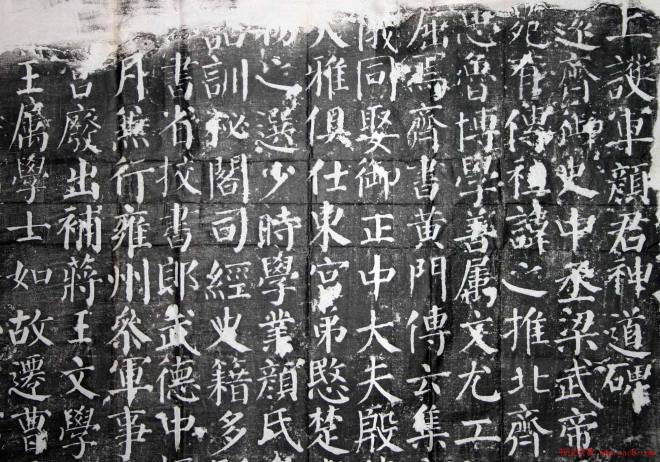 上護軍顏君神道碑
逐齊御史中丞梁武帝
苑有傳祖諱之推北齊
思魯博學善属文尤工
居焉齊書黃門傳云集
儀同娶御正中大夫殷
大雅俱仕東宮弟愍楚
初之選少時學業顏氏
記訓秘閣司經史籍多
書省校書郎武德中
月兼行雍州參軍事
宮廢出補蔣王文學
王属學士如故遷曹